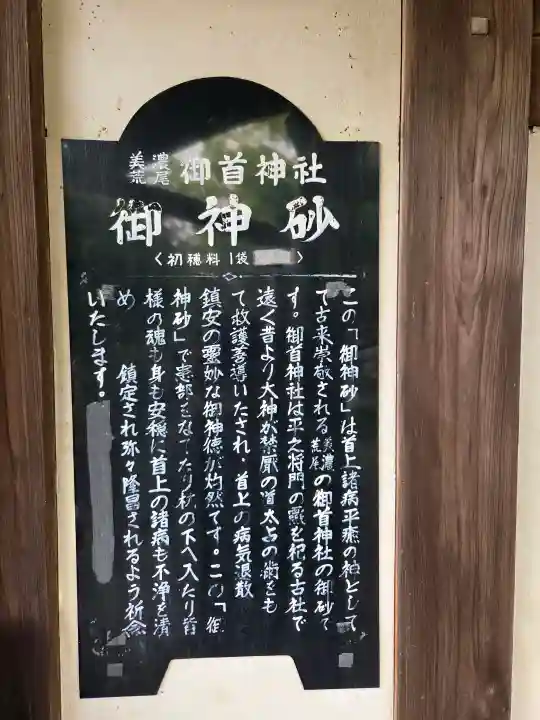 美濃
荒尾
御首神社
御神砂
〈初穂料 1袋 〉
この「御神砂」は首上諸病平癒の神として
て古来崇敬される美濃荒尾の御首神社の御砂で
す。御首神社は平之将門の霊を祀る古社で
遠く昔より大神が禁厭の道太占の術をも
て救護善導いたされ、首上の病気退散
鎮安の霊妙な御神徳が灼然です。この「御
神砂」で患部をなでたり枕の下へ入たり皆
様の魂も身も安穏に首上の諸病も不浄を清
め 鎮定され弥々隆昌されるよう祈念
いたします。